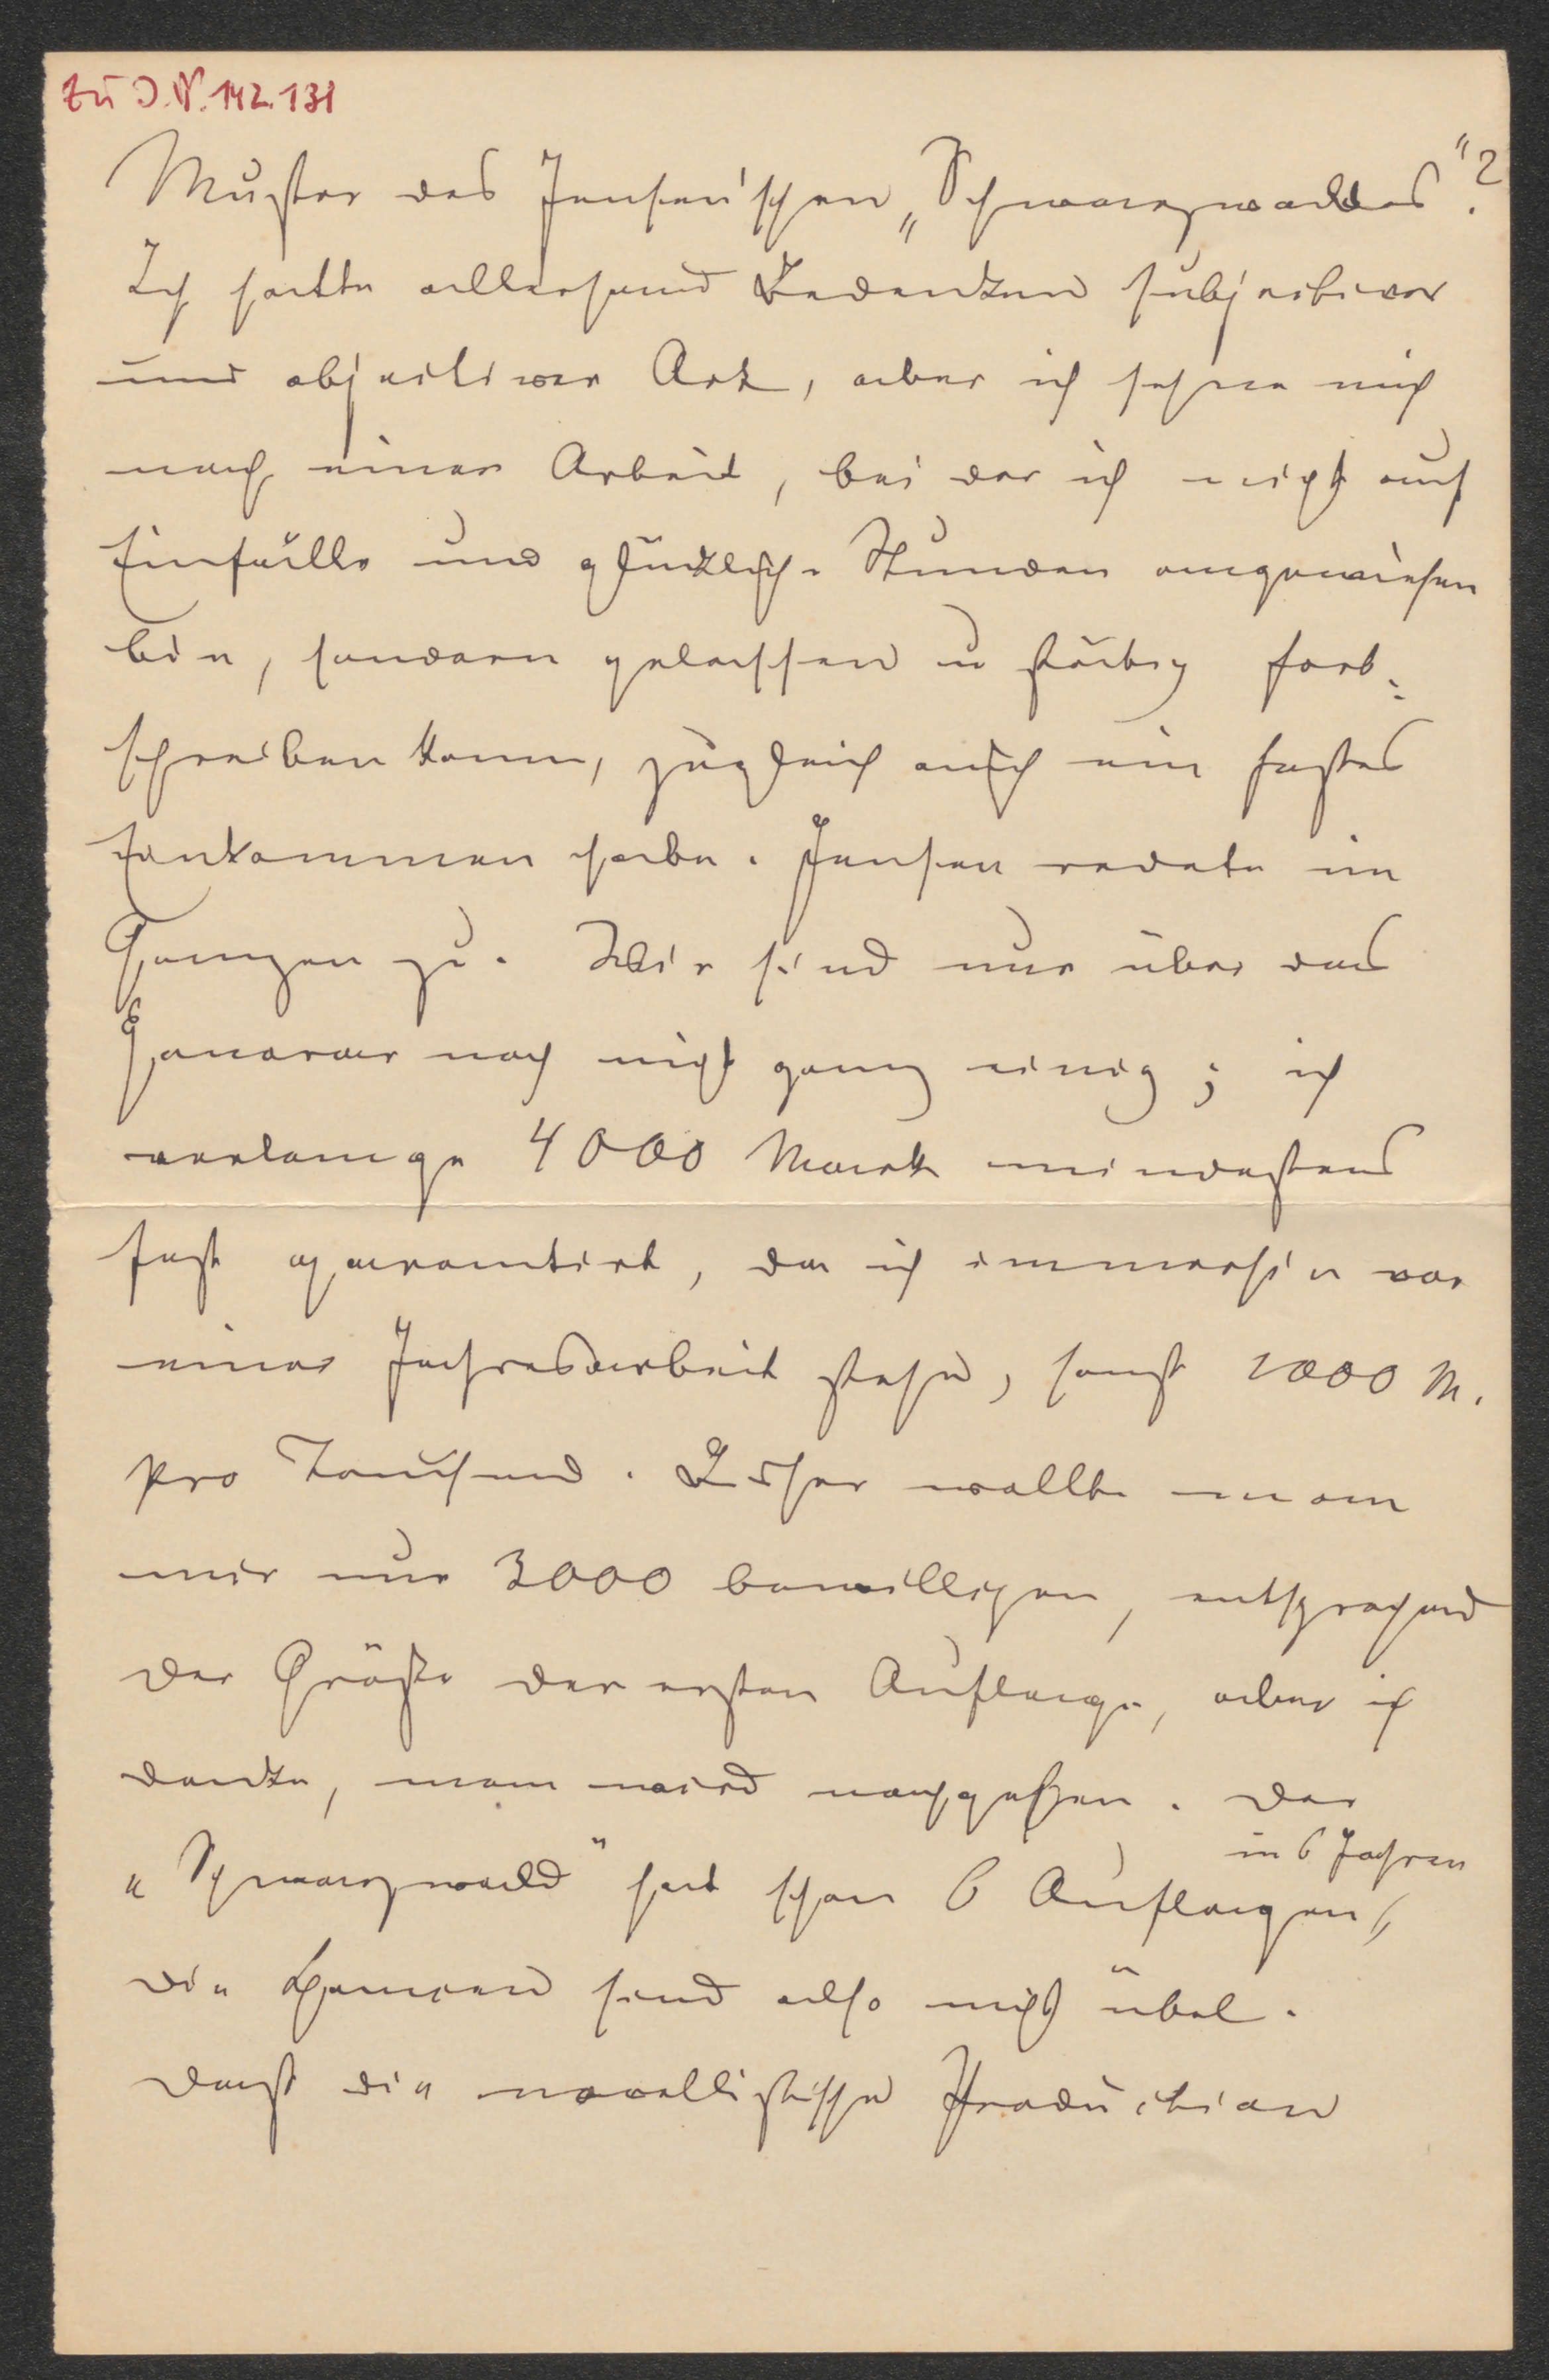 Zu I.N. 142.131
Muster des Jensen'schen „Schwarzwaldes"?
Ich hatte allerhand Bedenken subjectiver
und objectiver Art, aber ich sehne mich
nach einer Arbeit, bei der ich nicht auf
Einfälle und glückliche Stunden angewiesen
bin, sondern gelassen u stätig fort-
schreiben kann, zugleich auch ein festes
Einkommen habe. Jensen redete im
Ganzen zu. Wir sind nur über das
Honorar noch nicht ganz einig; ich
verlange 4000 Mark mindestens
fest garantirt, da ich immerhin vor
einer Jahresarbeit stehe, sonst 1000 M.
pro Tausend. Bisher wollte man
mir nur 3000 bewilligen, entsprechend
der Größe der ersten Auflage, aber ich
denke, man wird nachgeben. Der
in 6 Jahren
„Schwarzwald" hat schon 6 Auflagen,
die Chancen sind also nicht übel.
Danst die novellistische Production